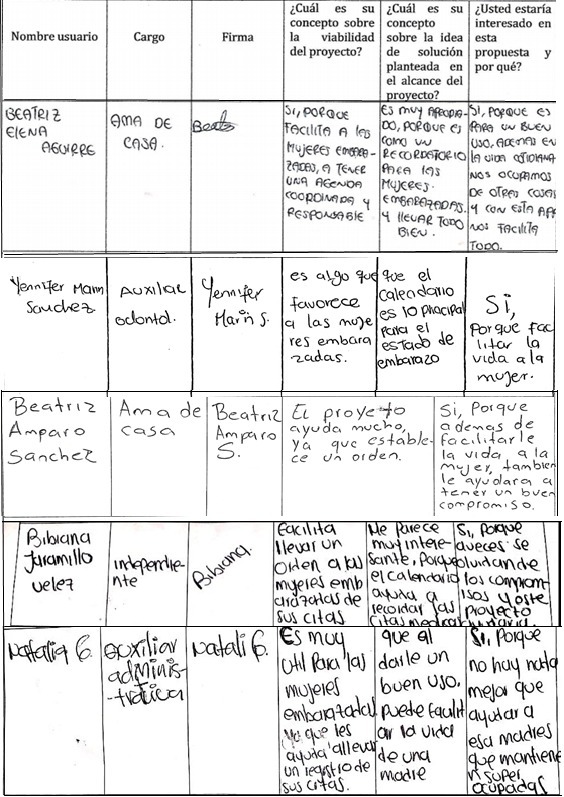 Nombre usuario
Cargo
Firma
¿Cuál es su
concepto sobre
la viabilidad
del proyecto?
¿Cuál es su
concepto
sobre la idea
de solución
planteada en
el alcance del
proyecto?
¿Usted estaría
interesado en
esta
propuesta y
por qué?
BEATRIZ
ELENA
AGUIRRE
AMA DE
CASA.
Beatr
SI, PORQUE
FACILITA A las
MUJERES EMBARA-
ZADAS, A TENER
UNA AGENDA
COORDINADA Y
RESPONSABLE
ES MUY APROPIA-
DO, PORQUE ES
COMO UN
RECORDATORIO
PARA LAS
MUJERES.
EMBARAZADAS.
Y llEVAR TODO
BIEN.
SI, PORQUE ES
PARA UN BUEN
USO, ADEMAS EN
LA VIDA COTIDIANA
NOS OCUPAMOS
DE OTRAS COSAS
Y CON ESTA APP
NOS FACILITA
TODO.
Yennifer Marin
Sanchez
Auxiliar
odontol.
Yennifer
Marin S.
es algo que
favorece
a las muje
res embara
zadas.
que el
Calendario
es lo principal
para el
estado de
embarazo
Si,
Porque fac
litar la
vida a la
mujer.
Beatriz
Amparo
Sanchez
Ama de
casa
Beatriz
Amparo
S.
El proyecto
ayuda mucho,
ya que estable-
ce un orden.
Si, Porque
ademas de
facilitarle
la vida a la
mujer, tambien
le ayudara a
tener un buen
compromiso.
Bibiana
Jaramillo
velez
independie-
nte
Bibiana.
Facilita
llevar un
Orden a las
mujeres emb
arazadas de
sus citas
Me Parece
muy intere-
sante, Porque
el calendario
ayuda a
recordar las
citas medicas
Si, Porque
aveces se
olvidan de
los comprom-
isos y este
proyecto
Natalia G.
auxiliar
adminis-
-trativa
Natali G.
Es muy
util Para las
mujeres
embarazadas
ya que les
ayuda a llevar
un registro de
sus citas.
que al
darle un
buen uso.
Puede facilit
ar la vida
de una
madre
Si, Porque
no hay nada
mejor que
ayudar a
esa madres
que mantiene
n super
ocupadas